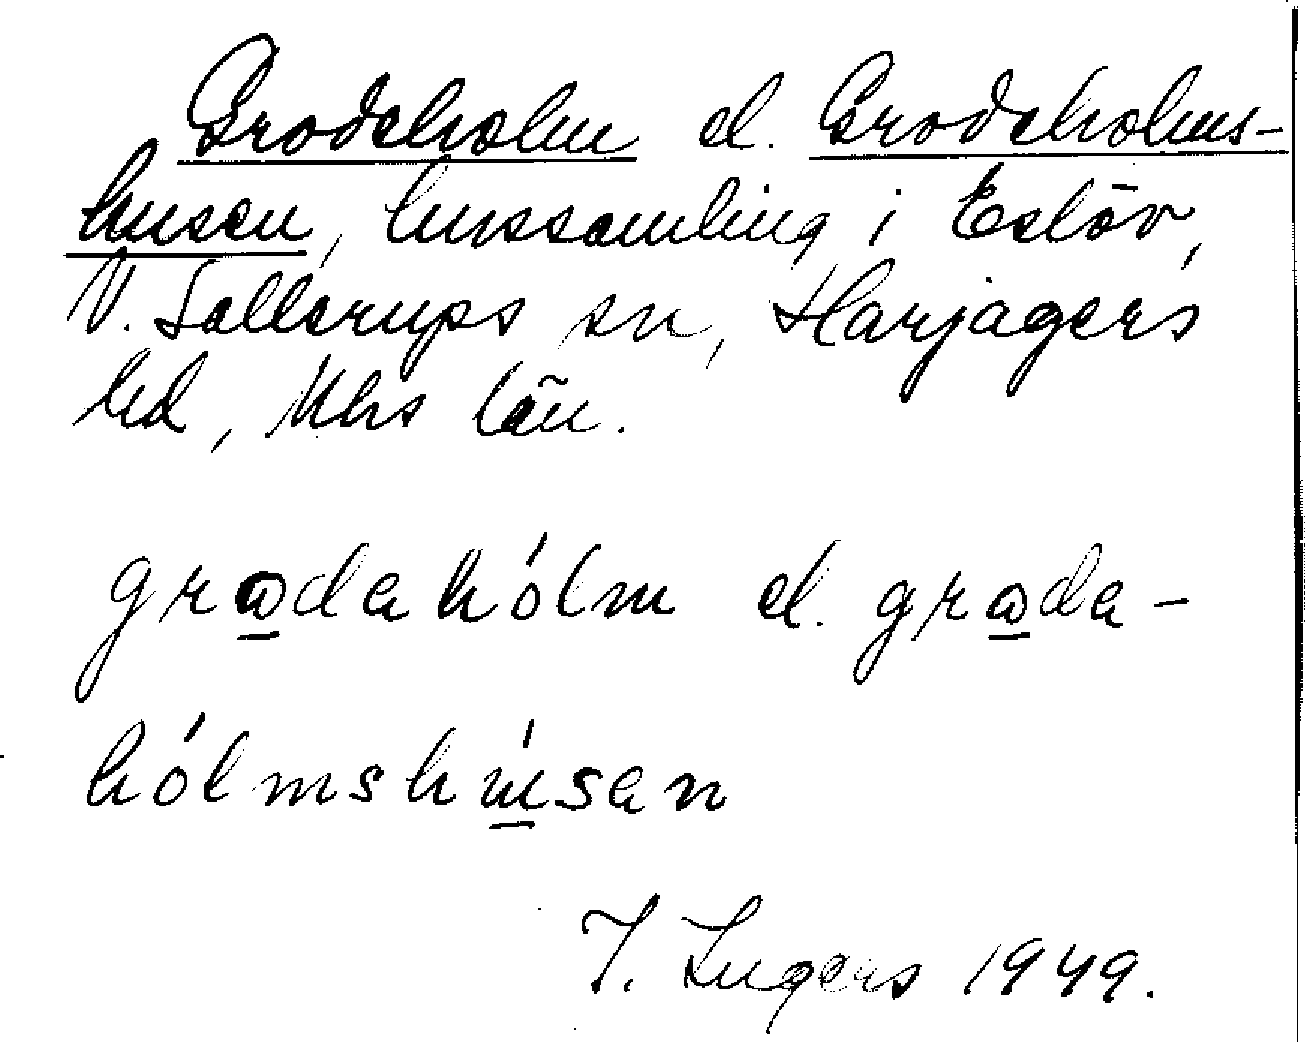 Grodeholm el. Grodeholms-
husen, hussamling i Eslöv,
V. Sallerups sn, Harjagers
hd, Mhs län.
grodahólm el. groda-
hólmshúsan
I. Ingers 1949.